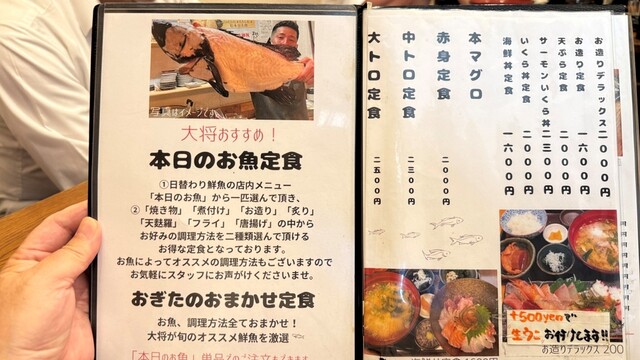 写真はイメージです
大将おすすめ！
本日のお魚定食
①日替わり鮮魚の店内メニュー
「本日のお魚」から一匹選んで頂き、
②「焼き物」「煮付け」「お造り」「炙り」
「天麩羅」「フライ」「唐揚げ」の中から
お好みの調理方法を二種類選んで頂ける
お得な定食となっております。
お魚によってオススメの調理方法もございますので
お気軽にスタッフにお声がけくださいませ。
おぎたのおまかせ定食
お魚、調理方法全ておまかせ！
大将が旬のオススメ鮮魚を厳選
お造りデラックス 二000円
お造り定食 一六00円
天ぷら定食 二000円
サーモンいくら丼 二三00円
いくら丼定食 二000円
海鮮丼定食 一六00円
本マグロ
赤身定食 二000円
中トロ定食 二三00円
大トロ定食 二五00円
+500yenで
生うに お付けします!!
お造りデラックス 200